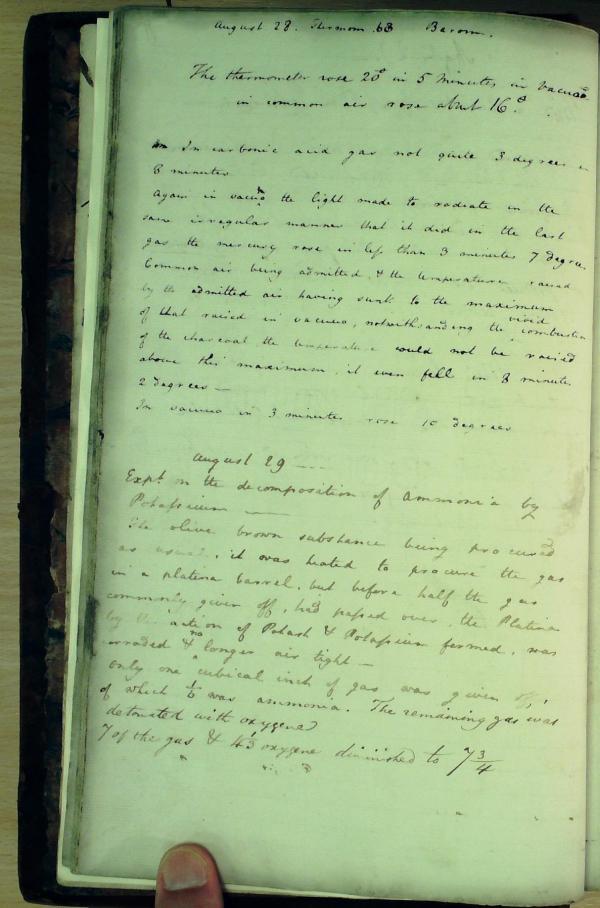 August 28. Thermom. 63 Barom.
The thermometer rose 20° in 5 Minutes in Vacuo
in common air rose about 16°.
In carbonic acid gas not quite 3 degrees in
6 minutes
Again in vacuo the light made to radiate in the
same irregular manner that it did in the last
gas the mercury rose in less than 3 minutes 7 degrees
Common air being admitted & the temperature raised
by the admitted air having sunk to the maximum
of that raised in vacuo, notwithstanding the vivid combustion
of the charcoal the temperature could not be raised
above this maximum, it even fell in 8 minutes
2 degrees —
In vacuo in 3 minutes rose 10 degrees
August 29 —
Expt. on the decomposition of ammonia by
Potassium —
The olive brown substance being procured
as usual, it was heated to procure the gas
in a platina barrel, but before half the gas
commonly given off, had passed over, the Platina
by the action of Potash & Potassium formed, was
corroded & no longer air tight —
only one cubical inch of gas was given off,
of which was ammonia. The remaining gas was
detonated with oxygene
7 of the gas & oxygene diminished to 7 3/4